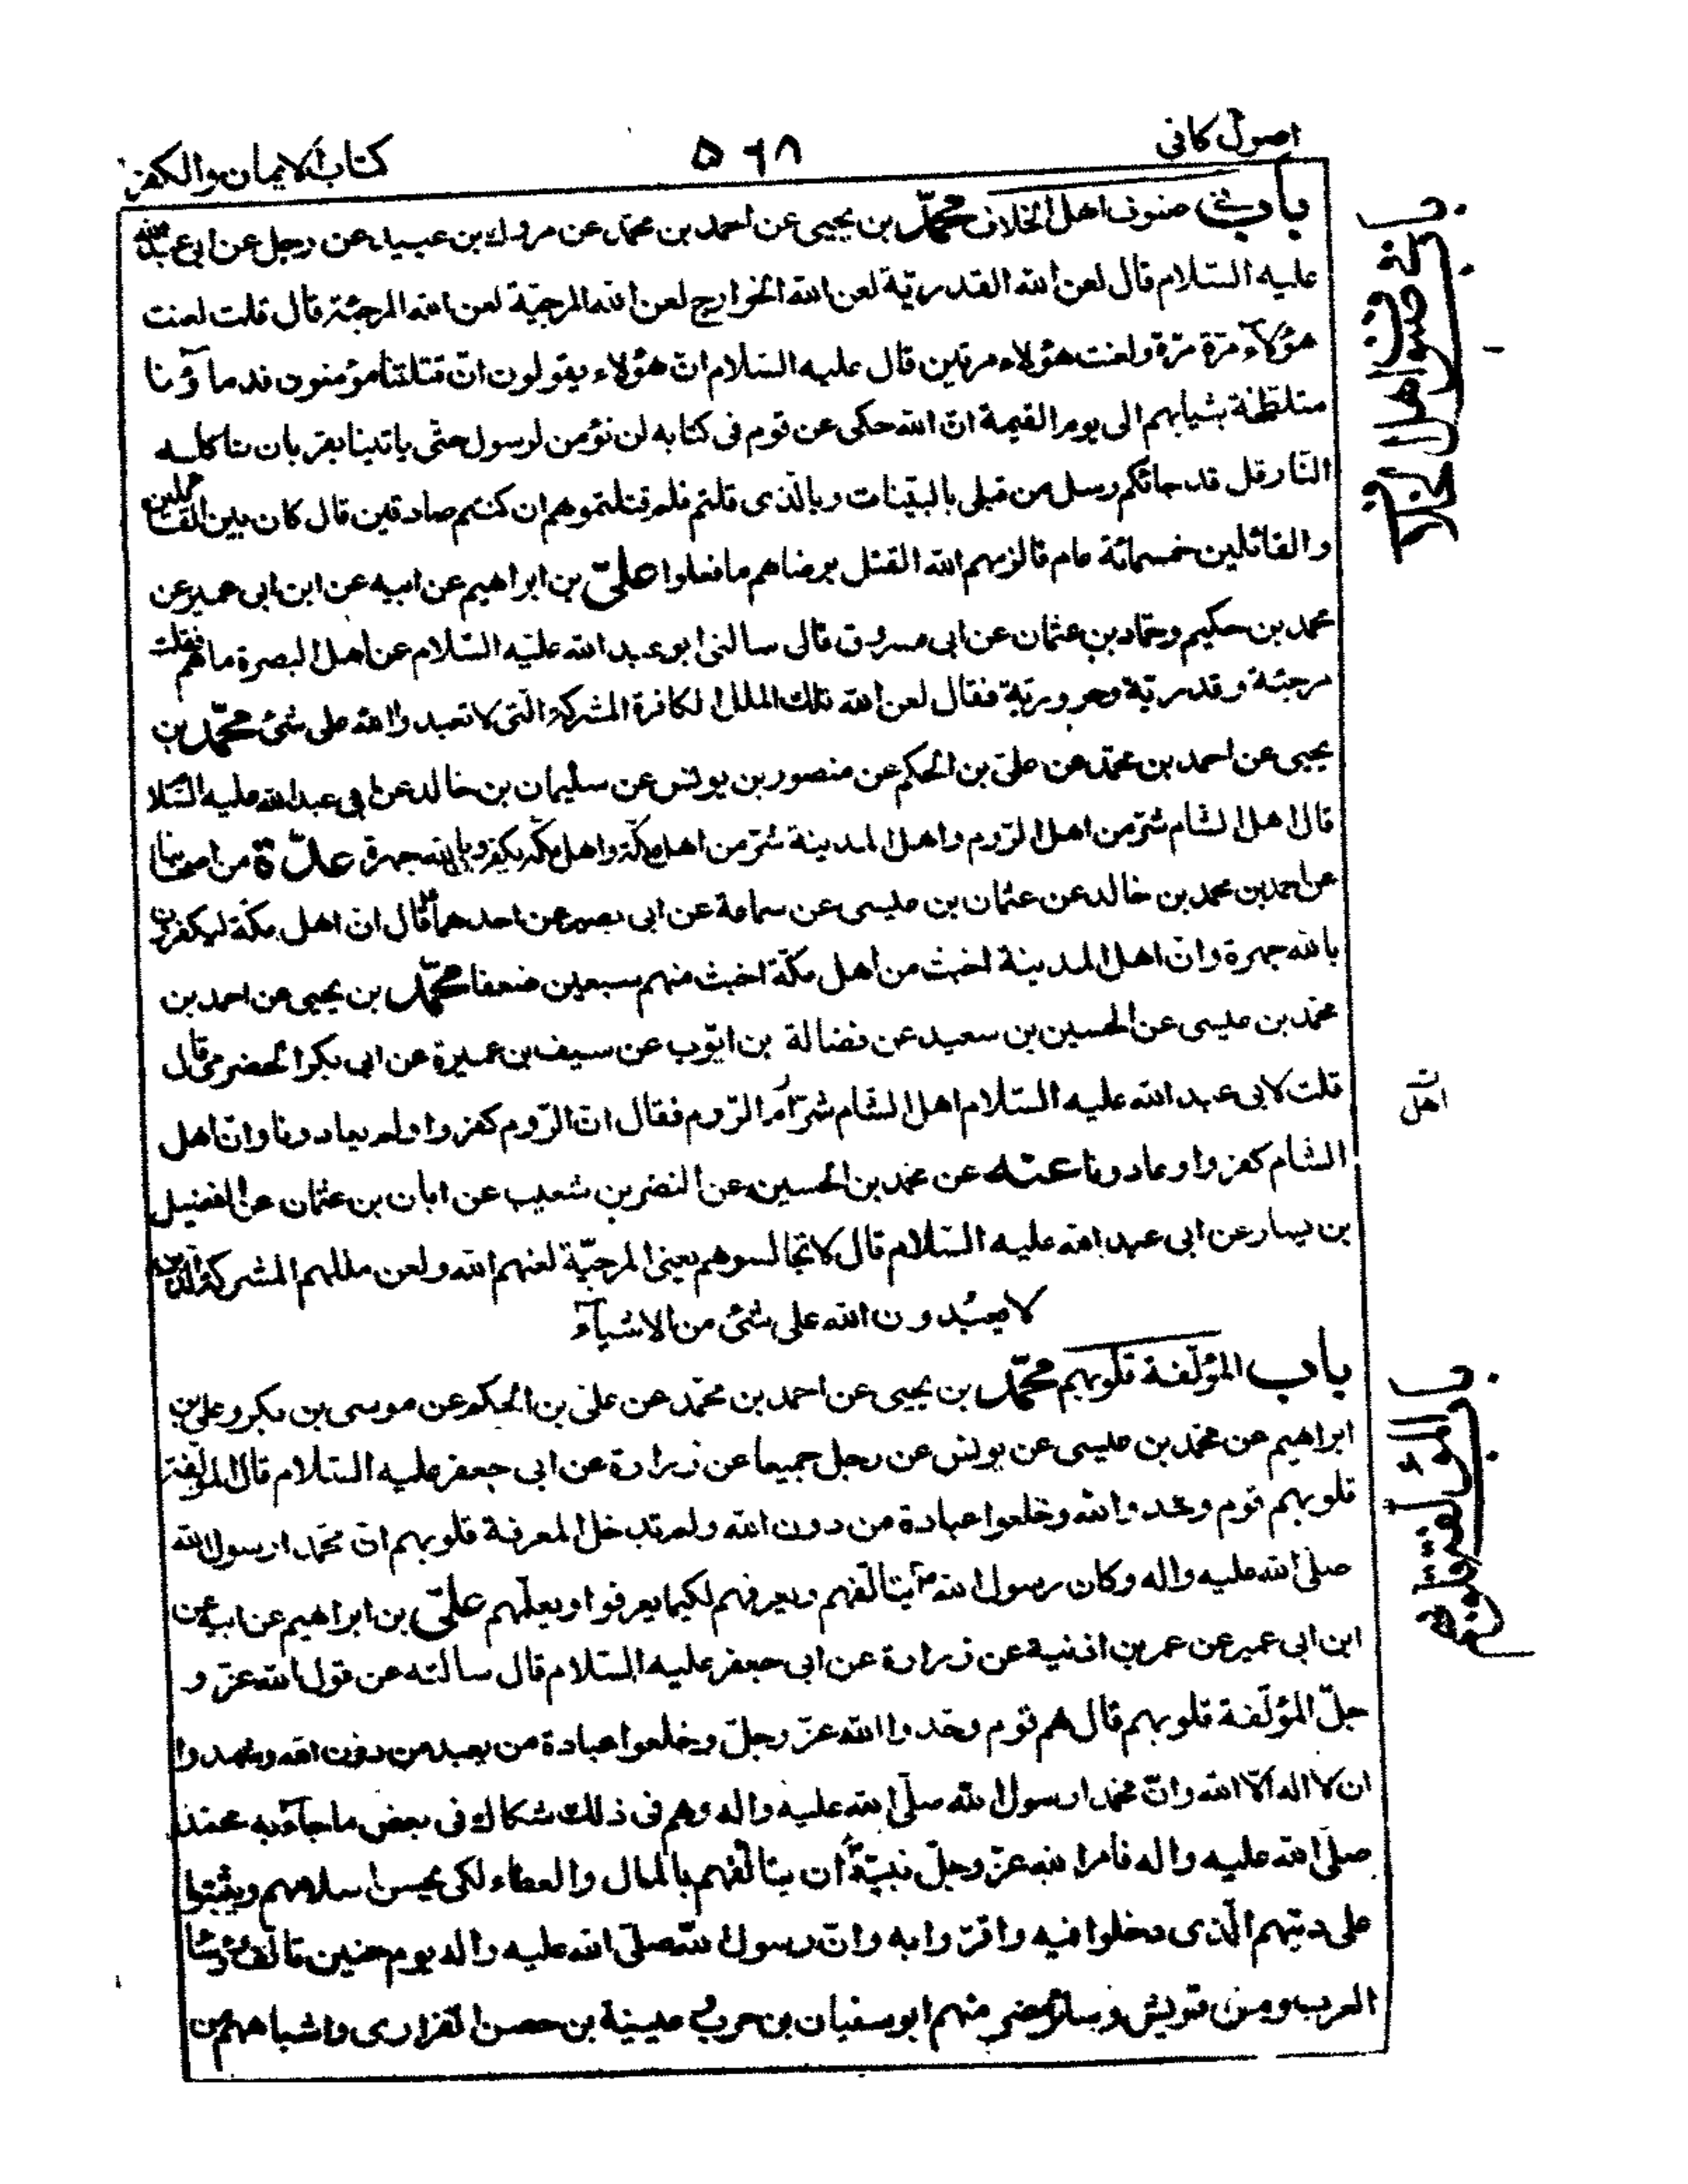 اصول كافى
٥٦٨
كتاب الايمان والكفر
باب فى صنوف اهل الخلاف محمّد بن يحيى عن احمد بن محمّد عن مروك بن عبيد عن رجل عن ابى عبد الله
عليه السّلام قال لعن الله القدريّة لعن الله الخوارج لعن الله المرجئة لعن الله المرجئة قال قلت لعنت
هؤلاء مرّة مرّة ولعنت هؤلاء مرتين قال عليه السّلام انّ هؤلاء يقولون انّ قتلتنا مؤمنون فدماؤنا
متلطّخة بثيابهم الى يوم القيمة انّ الله حكى عن قوم فى كتابه لن نؤمن لرسول حتّى ياتينا بقربان تاكله
النّار قل قد جائكم رسل من قبلى بالبيّنات وبالّذى قلتم فلم قتلتموهم ان كنتم صادقين قال كان بين القاتلين
والقائلين خمسمائة عام فالزمهم الله القتل برضاهم ما فعلوا علىّ بن ابراهيم عن ابيه عن ابن ابى عمير عن
محمد بن حكيم وحمّاد بن عثمان عن ابى مسروق قال سالنى ابو عبد الله عليه السّلام عن اهل البصرة ما هم فقلت
مرجئة وقدريّة وحروريّة فقال لعن الله تلك الملل الكافرة المشركة الّتى لا تعبد الله على شئ محمّد بن
يحيى عن احمد بن محمّد عن علىّ بن الحكم عن منصور بن يونس عن سليمان بن خالد عن ابى عبد الله عليه السّلا
قال اهل الشام شرّ من اهل الرّوم واهل المدينة شرّ من اهل مكّة واهل مكّة يكفرون بالله جهرة عدّة من اصحابنا
عن احمد بن محمد بن خالد عن عثمان بن عيسى عن سماعة عن ابى بصير عن احدهما قال ان اهل مكّة ليكفرون
بالله جهرة وانّ اهل المدينة اخبث من اهل مكّة اخبث منهم سبعين ضعفا محمّد بن يحيى عن احمد بن
محمّد بن عيسى عن الحسين بن سعيد عن فضالة بن ايّوب عن سيف بن عميرة عن ابى بكر الحضرمى قال
قلت لابى عبد الله عليه السّلام اهل الشام شرّ ام الرّوم فقال انّ الرّوم كفروا ولم يعادونا وانّ اهل
الشام كفروا وعادونا عنه عن محمّد بن الحسين عن النضر بن شعيب عن ابان بن عثمان عن الفضيل
بن يسار عن ابى عبد الله عليه السّلام قال لا تجالسوهم يعنى المرجئة لعنهم الله ولعن مللهم المشركة الّذين
لا يعبُدون الله على شئ من الاشيآء
باب المؤلّفة قلوبهم محمّد بن يحيى عن احمد بن محمّد عن على بن الحكم عن موسى بن بكر وعلى بن
ابراهيم عن محمّد بن عيسى عن يونس عن رجل جميعا عن زرارة عن ابى جعفر عليه السّلام قال المؤلّفة
قلوبهم قوم وحدوا الله وخلعوا عبادة من دون الله ولم تدخل المعرفة قلوبهم انّ محمّدا رسول الله
صلّى الله عليه واله وكان رسول الله ص يتالّفهم ويعرفهم لكيما يعرفوا ويعلّمهم علىّ بن ابراهيم عن ابيه عن
ابن ابى عمير عن عمر بن اذنية عن زرارة عن ابى جعفر عليه السّلام قال سالته عن قول الله عزّ و
جلّ المؤلّفة قلوبهم قال هم قوم وحّدوا الله عزّ وجلّ وخلعوا عبادة من يعبد من دون الله وشهدوا
ان لا اله الّا الله وانّ محمّدا رسول الله صلّى الله عليه واله وهم فى ذلك شكاك فى بعض ما جآء به محمّد
صلّى الله عليه واله فامر الله عزّ وجلّ نبيّه ان يتالّفهم بالمال والعطاء لكى يحسن اسلامهم ويثبتوا
على دينهم الّذى دخلوا فيه واقرّوا به وانّ رسول الله صلّى الله عليه واله يوم حنين تالّف رؤسا
العرب ومن قريش وسائر مضر منهم ابو سفيان بن حرب و عيينية بن حصن الفزارى واشباههم من
باب فى صنوف اهل الخلاف
انّ
اهل
باب المؤلّفة قلوبهم